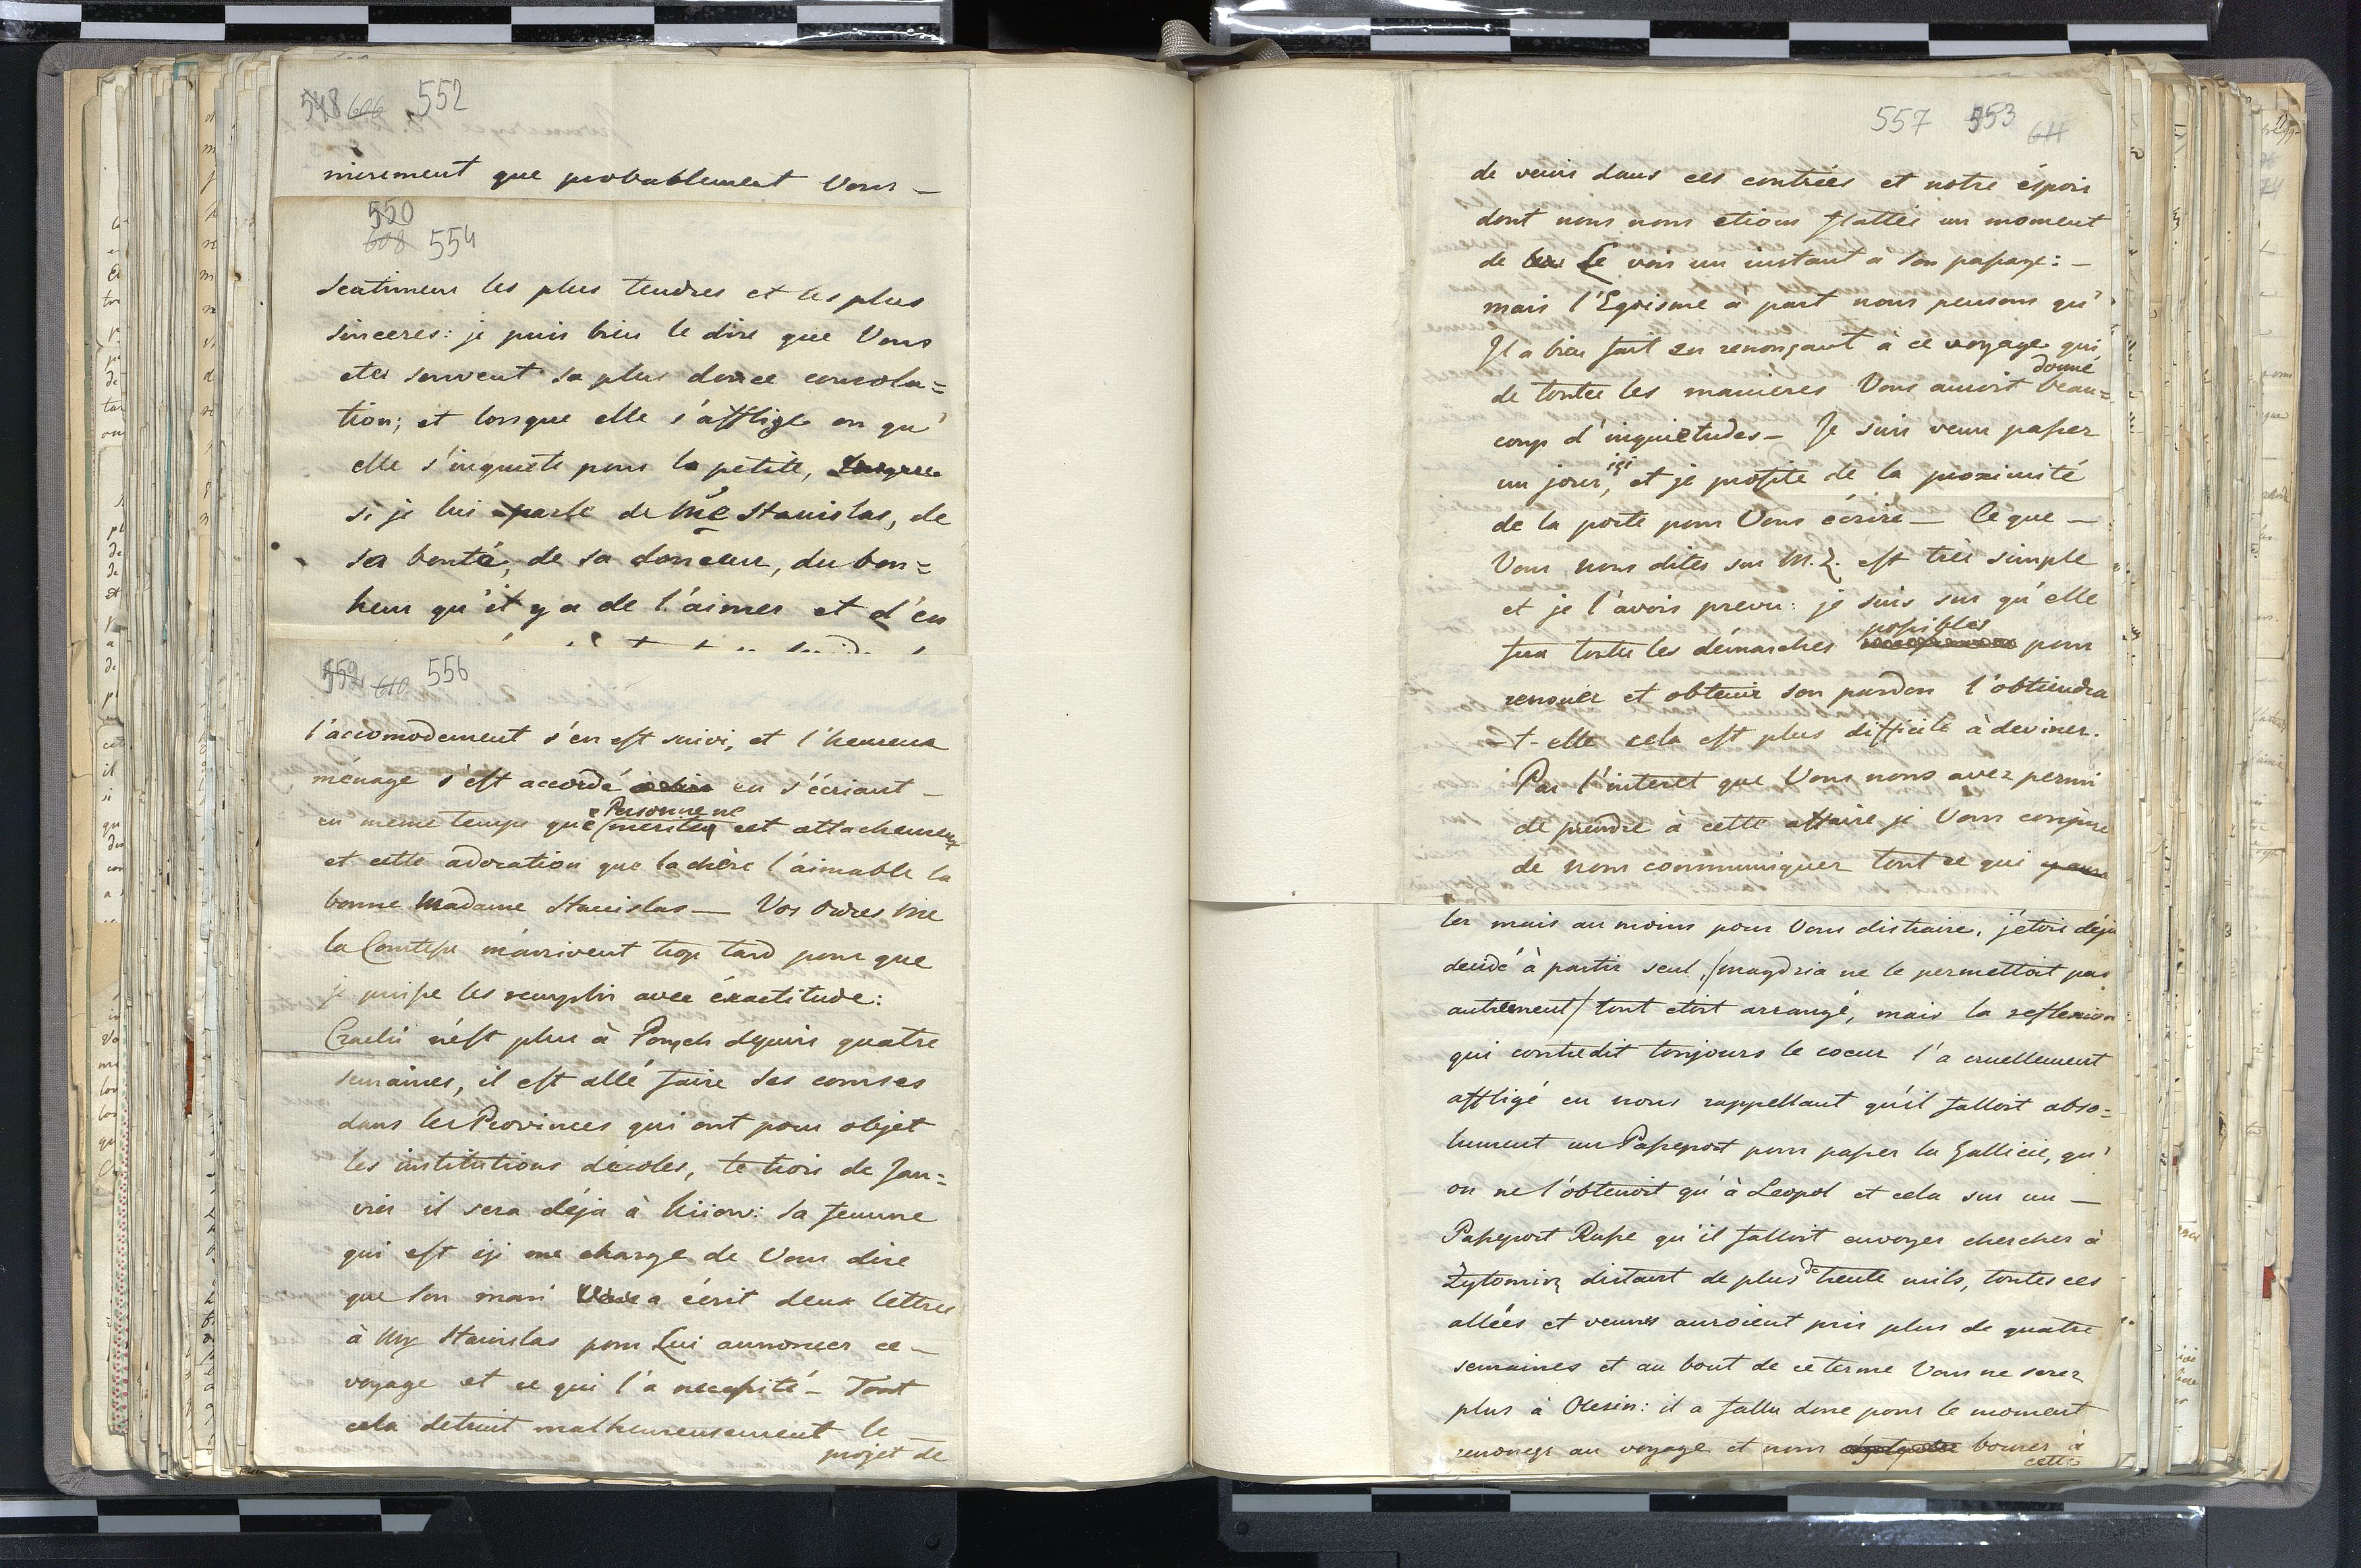 548 606 552
mirement que probablement Vous —
550
608 554
sentimens les plus tendres et les plus
sinceres: je puis bien le dire que Vous
etes souvent sa plus douce consola=
tion; et lorsque elle s'afflige on qu'
elle s'inquiete pour la petite,
si je lui parle de Me Stanislas, de
sa bonté, de sa douceur, du bon=
heur qu'il y a de l'aimer et d'en
552 610 556
l'accomodement s'en est suivi, et l'heureux
ménage s'est accordé en s'écriant —
Personne ne
en meme temps que meritey cet attachement
et cette adoration que la chère l'aimable la
bonne Madame Stanislas — Vos Ordres Me
la Comtesse m'arrivent trop tard pour que
je puisse les remplir avec éxactitude:
Czacki n'est plus à depuis quatre
semaines, il est allé faire ses courses
dans les Provinces qui ont pour objet
les institutions d'écoles, le trois de Jan=
vier il sera déja à Kiiow: sa femme
qui est içi me charge de Vous dire
que son mari a écrit deux lettres
à Mr Stanislas pour Lui annoncer ce —
voyage et ce qui l'a necessité — Tout
cela detruit malheureusement le
projet de
557 553 611
de venir dans ces contrées et notre éspoir
dont nous nous etions flattés un moment
de Le voir un instant a son passage: —
mais l'Egoisme à part nous pensons qu'
Il a bien fait en renonçant à ce voyage qui
donné
de toutes les manieres Vous auroit beau=
coup d'inquietudes — Je suis venu passer
içi
un jour, et je profite de la proximité
de la poste pour Vous écrire — Ce que —
Vous nous dites sur M. Z. est très simple
et je l'avois prevu: je suis sur qu'elle
possibles
fera toutes les démarches pour
renouer et obtenir son pardon l'obtiendra
-t-elle cela est plus difficile à deviner.
Par l'interet que Vous nous avez permi
de prendre à cette affaire je Vous conjure
de nous communiquer tout ce qui y aura
ler mais au moins pour Vous distraire, j'étois déja
decidé à partir seul, /magdzia ne le permettoit pas
autrement/ tout etoit arrangé, mais la reflexion
qui contredit toujours le coeur l'a cruellement
affligé en nous rappellant qu'il falloit abso=
lument un Passeport pour passer la Gallicie, qu'
on ne l'obtenoit qu'à Leopol et cela sur un —
Passeport Russe qu'il falloit envoyer chercher à
de
Zytomirz distant de plus trente mils, toutes ces
allées et venues auroient pris plus de quatre
semaines et au bout de ce terme Vous ne serez
plus à Olesin: il a fallu donc pour le moment
renonçer au voyage et nous borner à
cette